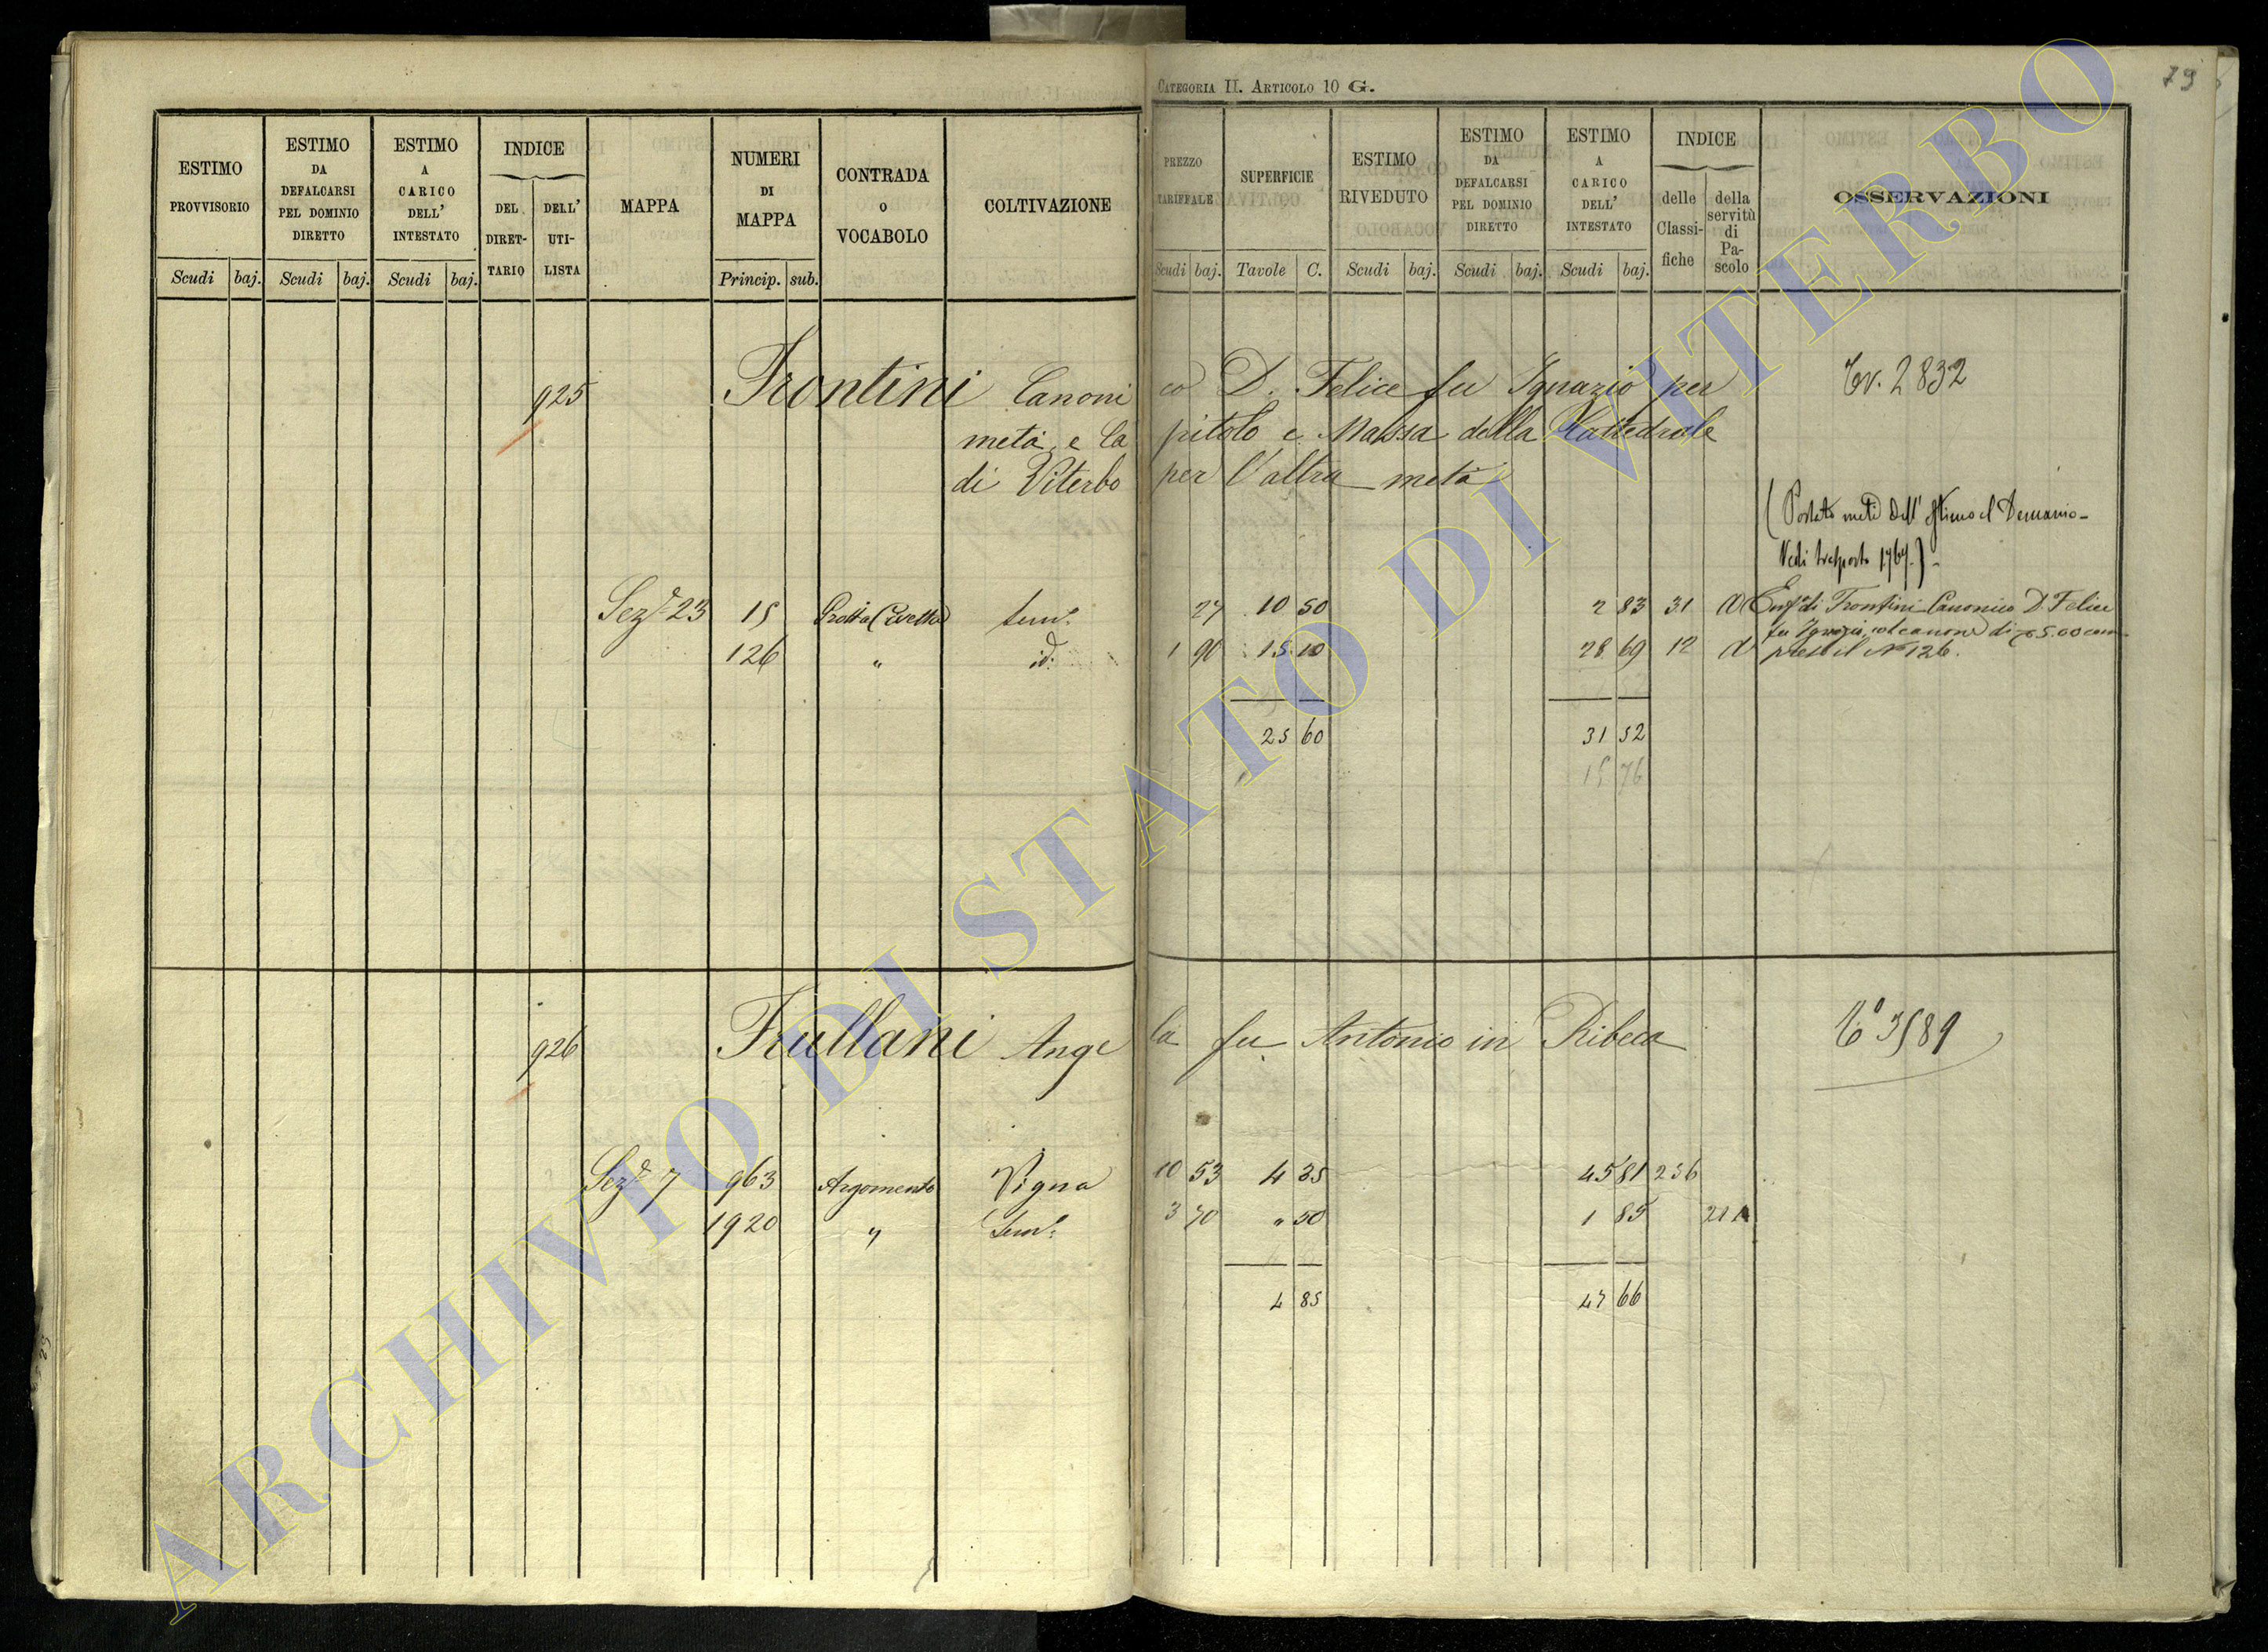 CATEGORIA II. ARTICOLO 10 G.
79
ESTIMO PROVVISORIO
ESTIMO DA DEFALCARSI PEL DOMINIO DIRETTO
ESTIMO A CARICO DELL' INTESTATO
INDICE
DEL DIRET-TARIO
DELL' UTI-LISTA
MAPPA
NUMERI DI MAPPA
CONTRADA O VOCABOLO
COLTIVAZIONE
PREZZO TARIFFALE
SUPERFICIE
ESTIMO RIVEDUTO
ESTIMO DA DEFALCARSI PEL DOMINIO DIRETTO
ESTIMO A CARICO DELL' INTESTATO
INDICE
delle Classi-fiche
della servitù di Pa-scolo
OSSERVAZIONI
Scudi baj. Scudi baj. Scudi baj. Princip. sub. Scudi baj. Tavole C. Scudi baj. Scudi baj. Scudi baj.
925 Frontini Canoni co D. Felice fu Ignazio per 2832
metà e Ca pitolo e Massa della Cattedrale
di Viterbo per l'altra metà
(Portato metà dell' Estimo al Demanio -
Vedi trasporto 1767.) -
Sez.e 23 15 Grotta Civetta sem.o 27 10 50 2 83 31 a Enf.a di Frontini Canonico D. Felice
fu Ignazio, col canone di 5.00 com-
126 " id. 1 90 15 10 28 69 12 a preso il N.o 126.
25 60 31 52
15 76
926 Frullani Ange la fu Antonio in Ribeca 3589
Sez.e 7 963 Argomento Vigna 10 53 4 35 45 81 236
1920 " Sem.o 3 70 " 50 1 85 21
4 85 47 66
ARCHIVIO DI STATO DI VITERBO